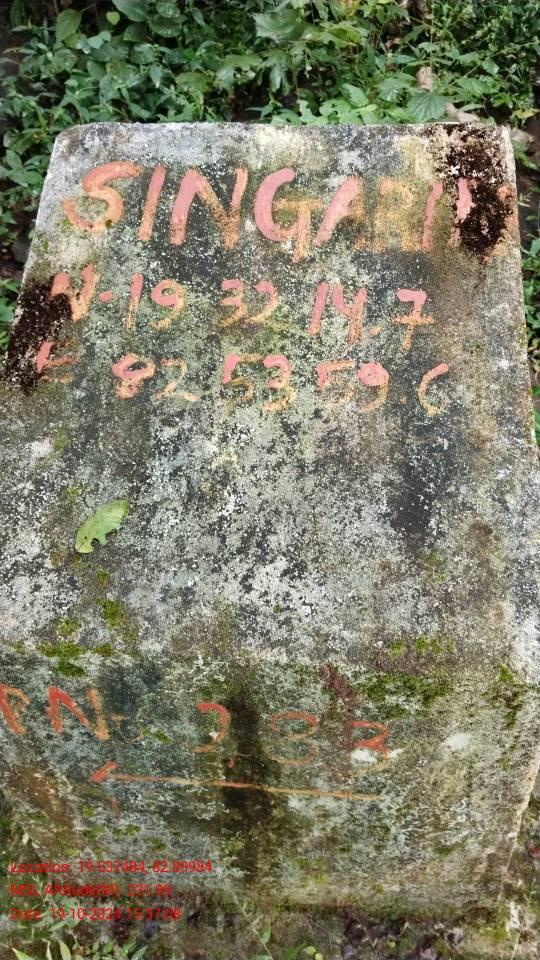 N-19 32 14.7
E 82 53 59.6
PN-
Location: 19.537484, 82.89984
MSL Altitude(M): 331.99
Date: 19-10-2024 15:37:08